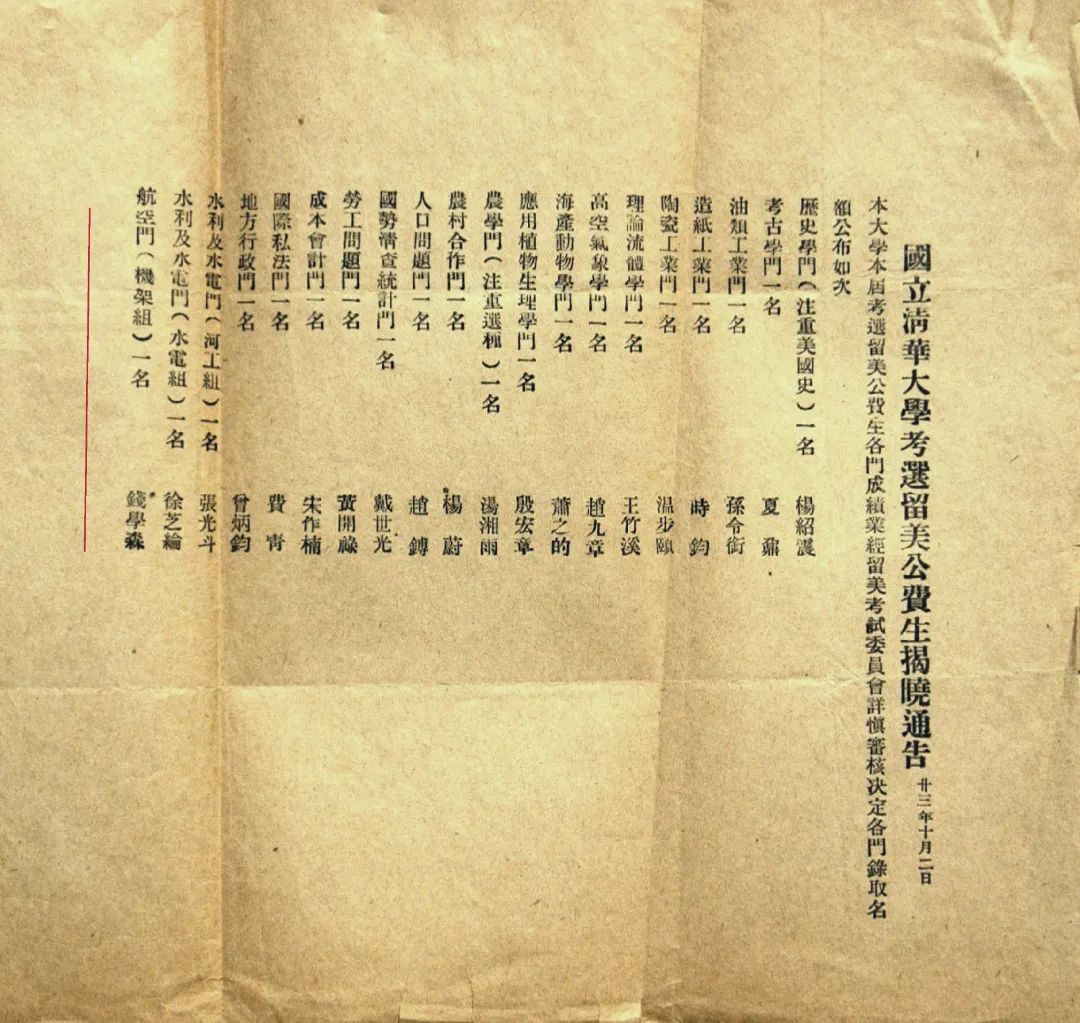 國立清華大學考選留美公費生揭曉通告 廿三年十月二日
本大學本屆考選留美公費生各門成績業經留美考試委員會詳慎審核決定各門錄取名
額公布如次
歷史學門(注重美國史)一名 楊紹震
考古學門一名 夏鼐
油類工業門一名 孫令銜
造紙工業門一名 時鈞
陶瓷工業門一名 温步頤
理論流體學門一名 王竹溪
高空氣象學門一名 趙九章
海產動物學門一名 蕭之的
應用植物生理學門一名 殷宏章
農學門(注重選種)一名 湯湘雨
農村合作門一名 楊蔚
人口問題門一名 趙鎛
國勢清查統計門一名 戴世光
勞工問題門一名 黃開祿
成本會計門一名 宋作楠
國際私法門一名 費青
地方行政門一名 曾炳鈞
水利及水電門(河工組)一名 張光斗
水利及水電門(水電組)一名 徐芝綸
航空門(機架組)一名 錢學森